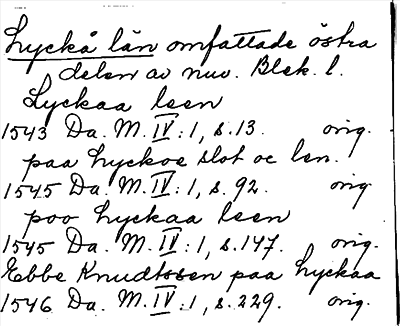 Lyckå län omfattade östra
delen av nuv. Blek. l.
Lyckaa leen
1543 Da. M. IV: 1, s. 13. orig.
paa Lyckoe slot oc len.
1545 Da. M. IV: 1, s. 92. orig
poo Lyckaa leen
1545 Da. M. IV: 1, s. 147. orig.
Ebbe Knudtssen paa Lyckaa
1546 Da. M. IV: 1, s. 229. orig.